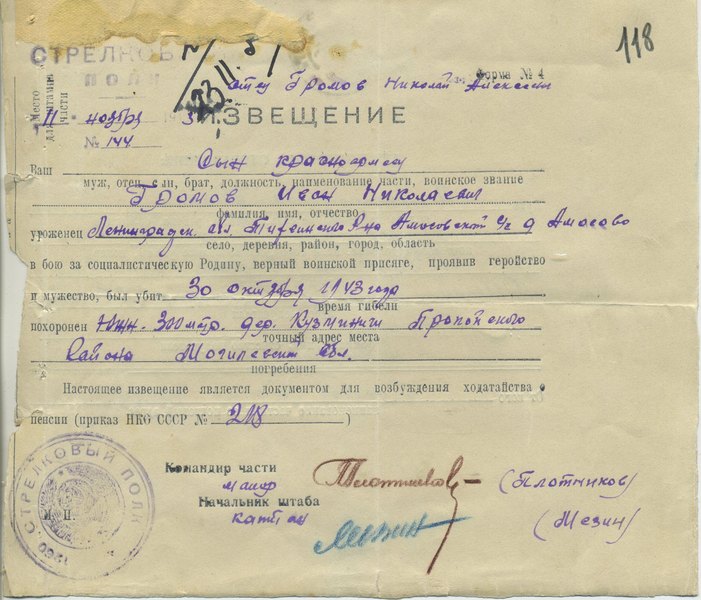 118
СТРЕЛКОВ
ПОЛК
Место
для штампа
части
23 II
Форма № 4
отцу Громов Николай Алексееви
11 ноября
ИЗВЕЩЕНИЕ
№ 144
Ваш Сын красноармеец
муж, отец, сын, брат, должность, наименование части, воинское звание
Громов Николаевич
фамилия, имя, отчество
уроженец Ленинградск. обл. р-на Амосовский с/с д Амосово
село, деревня, район, город, область
в бою за социалистическую Родину, верный воинской присяге, проявив геройство
и мужество, был убит 30 октября 1943 года
время гибели
похоронен Южн. 300 мтр. дер. Кузминичи Пропойского
точный адрес места
Района Могилевский обл.
погребения
Настоящее извещение является документом для возбуждения ходатайства о
пенсии (приказ НКО СССР № 218)
Командир части
майор Плотников (Плотников)
Начальник штаба
капитан Мезин (Мезин)
М. П.
1260 СТРЕЛКОВЫЙ ПОЛК